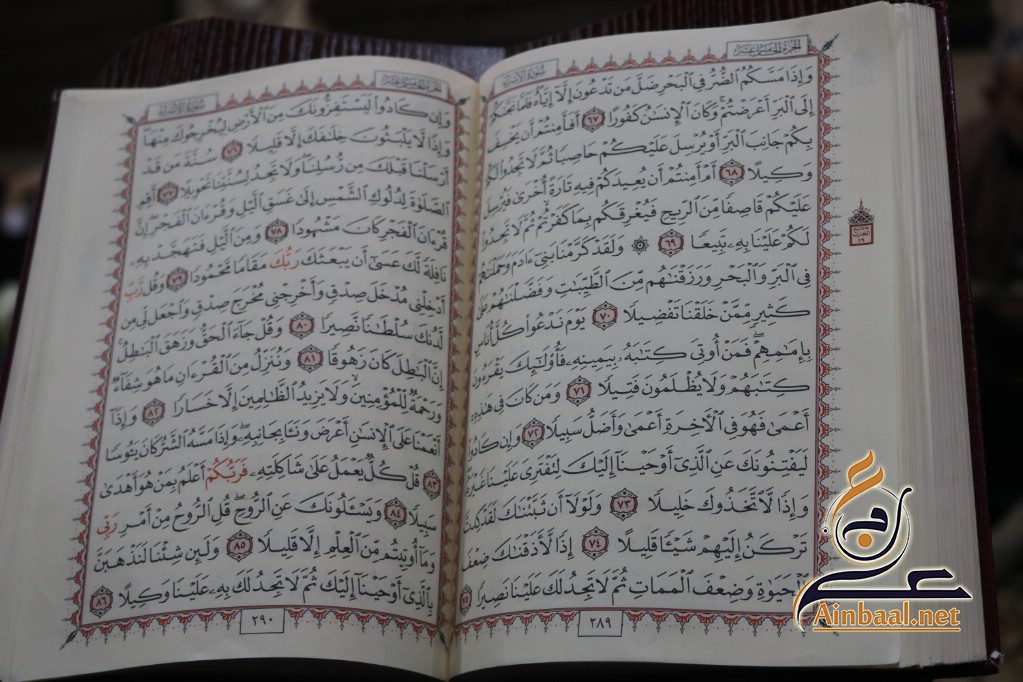 الجزء الخامس عشر
سورة الإسراء
وَإِذَا مَسَّكُمُ الضُّرُّ فِي الْبَحْرِ ضَلَّ مَن تَدْعُونَ إِلَّا إِيَّاهُ فَلَمَّا نَجَّىٰكُمْ
إِلَى الْبَرِّ أَعْرَضْتُمْ وَكَانَ الْإِنسَٰنُ كَفُورًا ٦٧ أَفَأَمِنتُمْ أَن يَخْسِفَ
بِكُمْ جَانِبَ الْبَرِّ أَوْ يُرْسِلَ عَلَيْكُمْ حَاصِبًا ثُمَّ لَا تَجِدُوا لَكُمْ
وَكِيلًا ٦٨ أَمْ أَمِنتُمْ أَن يُعِيدَكُمْ فِيهِ تَارَةً أُخْرَىٰ فَيُرْسِلَ
عَلَيْكُمْ قَاصِفًا مِّنَ الرِّيحِ فَيُغْرِقَكُم بِمَا كَفَرْتُمْ ثُمَّ لَا تَجِدُوا
لَكُمْ عَلَيْنَا بِهِ تَبِيعًا ٦٩ ۞ وَلَقَدْ كَرَّمْنَا بَنِي ءَادَمَ وَحَمَلْنَٰهُمْ
فِي الْبَرِّ وَالْبَحْرِ وَرَزَقْنَٰهُم مِّنَ الطَّيِّبَٰتِ وَفَضَّلْنَٰهُمْ عَلَىٰ
كَثِيرٍ مِّمَّنْ خَلَقْنَا تَفْضِيلًا ٧٠ يَوْمَ نَدْعُوا كُلَّ أُنَاسٍ
بِإِمَٰمِهِمْ فَمَنْ أُوتِيَ كِتَٰبَهُ بِيَمِينِهِ فَأُولَٰئِكَ يَقْرَءُونَ
كِتَٰبَهُمْ وَلَا يُظْلَمُونَ فَتِيلًا ٧١ وَمَن كَانَ فِي هَٰذِهِ
أَعْمَىٰ فَهُوَ فِي الْأَخِرَةِ أَعْمَىٰ وَأَضَلُّ سَبِيلًا ٧٢ وَإِن كَادُوا
لَيَفْتِنُونَكَ عَنِ الَّذِي أَوْحَيْنَا إِلَيْكَ لِتَفْتَرِيَ عَلَيْنَا غَيْرَهُ
وَإِذًا لَّاتَّخَذُوكَ خَلِيلًا ٧٣ وَلَوْلَا أَن ثَبَّتْنَٰكَ لَقَدْ كِدتَّ
تَرْكَنُ إِلَيْهِمْ شَيْئًا قَلِيلًا ٧٤ إِذًا لَّأَذَقْنَٰكَ ضِعْفَ
الْحَيَوٰةِ وَضِعْفَ الْمَمَاتِ ثُمَّ لَا تَجِدُ لَكَ عَلَيْنَا نَصِيرًا ٧٥
٢٨٩
الجزء الخامس عشر
سورة الإسراء
وَإِن كَادُوا لَيَسْتَفِزُّونَكَ مِنَ الْأَرْضِ لِيُخْرِجُوكَ مِنْهَا
وَإِذًا لَّا يَلْبَثُونَ خِلَٰفَكَ إِلَّا قَلِيلًا ٧٦ سُنَّةَ مَن قَدْ
أَرْسَلْنَا قَبْلَكَ مِن رُّسُلِنَا وَلَا تَجِدُ لِسُنَّتِنَا تَحْوِيلًا ٧٧ أَقِمِ
الصَّلَوٰةَ لِدُلُوكِ الشَّمْسِ إِلَىٰ غَسَقِ الَّيْلِ وَقُرْءَانَ الْفَجْرِ إِنَّ
قُرْءَانَ الْفَجْرِ كَانَ مَشْهُودًا ٧٨ وَمِنَ الَّيْلِ فَتَهَجَّدْ بِهِ
نَافِلَةً لَّكَ عَسَىٰ أَن يَبْعَثَكَ رَبُّكَ مَقَامًا مَّحْمُودًا ٧٩ وَقُل رَّبِّ
أَدْخِلْنِي مُدْخَلَ صِدْقٍ وَأَخْرِجْنِي مُخْرَجَ صِدْقٍ وَاجْعَل لِّي مِن
لَّدُنكَ سُلْطَٰنًا نَّصِيرًا ٨٠ وَقُلْ جَاءَ الْحَقُّ وَزَهَقَ الْبَٰطِلُ
إِنَّ الْبَٰطِلَ كَانَ زَهُوقًا ٨١ وَنُنَزِّلُ مِنَ الْقُرْءَانِ مَا هُوَ شِفَاءٌ
وَرَحْمَةٌ لِّلْمُؤْمِنِينَ وَلَا يَزِيدُ الظَّٰلِمِينَ إِلَّا خَسَارًا ٨٢ وَإِذَا
أَنْعَمْنَا عَلَى الْإِنسَٰنِ أَعْرَضَ وَنَـَٔا بِجَانِبِهِ وَإِذَا مَسَّهُ الشَّرُّ كَانَ يَـُٔوسًا
٨٣ قُلْ كُلٌّ يَعْمَلُ عَلَىٰ شَاكِلَتِهِ فَرَبُّكُمْ أَعْلَمُ بِمَنْ هُوَ أَهْدَىٰ
سَبِيلًا ٨٤ وَيَسْـَٔلُونَكَ عَنِ الرُّوحِ قُلِ الرُّوحُ مِنْ أَمْرِ رَبِّي
وَمَا أُوتِيتُم مِّنَ الْعِلْمِ إِلَّا قَلِيلًا ٨٥ وَلَئِن شِئْنَا لَنَذْهَبَنَّ
بِالَّذِي أَوْحَيْنَا إِلَيْكَ ثُمَّ لَا تَجِدُ لَكَ بِهِ عَلَيْنَا وَكِيلًا ٨٦
٢٩٠
Ainbaal.net